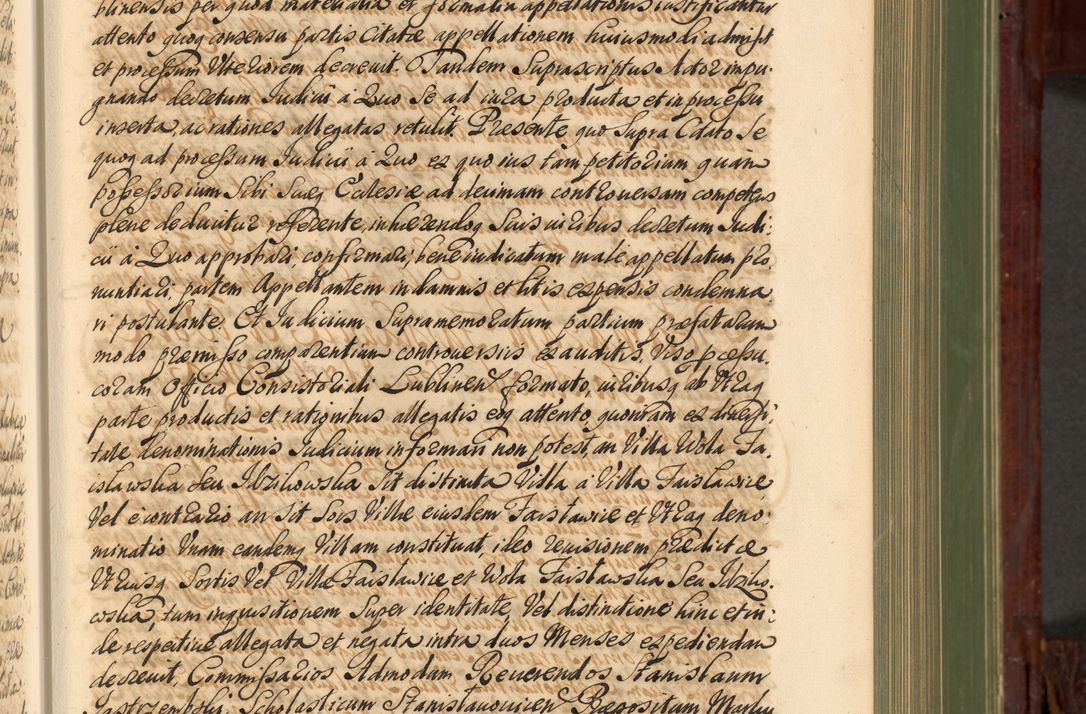 blinensis per quod materialia et formalia appellationis iustificantur
attento quoq consensu partis Citatæ appellationem huiusmodi admisit
et processum Ulteriorem decreuit. Tandem Suprascriptus Actor impu-
gnando decretum Iudicii à Quo Se ad iura producta et in processu
inserta, ac rationes allegatas retulit. Præsente quo Supra Citato Se
quoq ad processum Iudicii à Quo ex quo ius tam petitorium quàm
possessorium Sibi Suæq Ecclesiæ ad decimam controuersam competens
plene deducitur referente, inhærendoq Suis iuribus decretum Iudi:
cii à Quo approbari, confirmari, bene iudicatum male appellatum pro.
nuntiari, partem Appellantem in damnis et litis expensis condemna
ri postulante. Et Iudicium Supramemoratum partium præfatarum
modo præmisso comparentium controuersiis exauditis, Viso processu
coram Officio Consistoriali Lublinen formato, iuribusq ab Utraq
parte productis et rationibus allegatis eoq attento, quoniam ex diuersi:
tate denominationis Iudicium informari non potest, an Villa Wola Fa.
islawska Seu Idzikowska Sit distincta Villa à Villa Faislawice
Vel è contrario an Sit Sors Villæ eiusdem Faislawice et Utraq deno:
minatio Unam eandemq Villam constituat, ideo reuisionem prædictæ
Utriusq Sortis Vel Villæ Faislawice et Wola Faislawska Seu Idziko.
wska, tum inquisitionem Super identitate, Vel distinctione hinc et in:
de respectiue allegata et negata intra duos Menses expediendam
decreuit. Commissarios Admodum Reuerendos Stanislaum
Jastrzembski Scholasticum Stanislauouicen Præpositum Marku